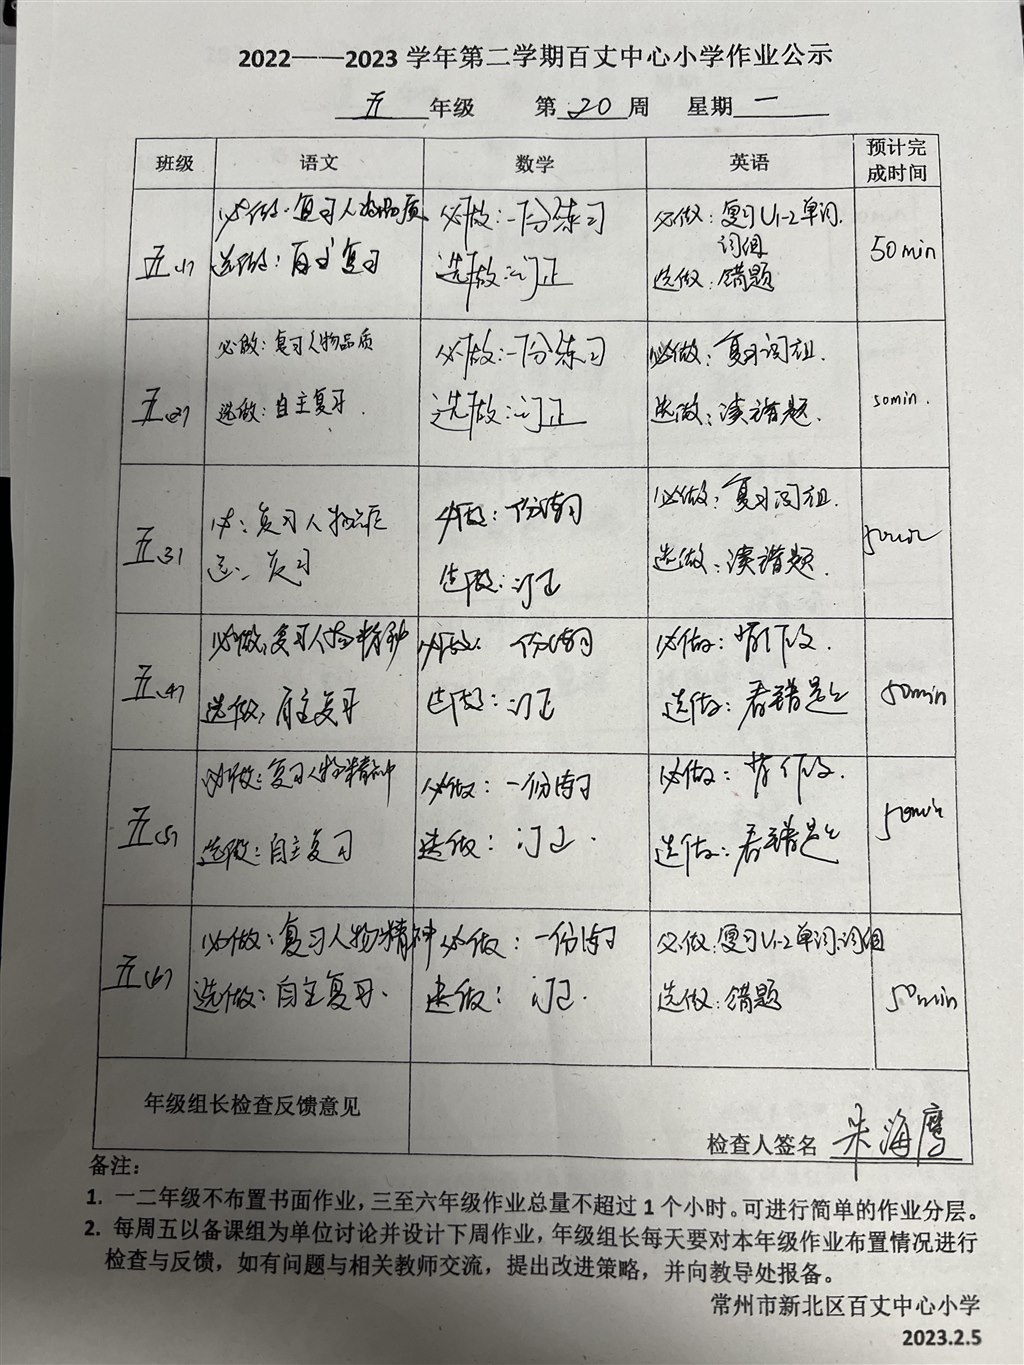 2022——2023 学年第二学期百丈中心小学作业公示
五 年级 第 20 周 星期 一
班级 语文 数学 英语 预计完成时间
五(1)
必做：复习人物品质
选做：自主复习
必做：一份练习
选做：订正
必做：复习U1-2单词.
词组
选做：错题
50min
五(2)
必做：复习人物品质
选做：自主复习.
必做：一份练习
选做：订正
必做：复习词组.
选做：读错题.
50min.
五(3)
必：复习人物品质
选：复习
必做：一份
选做：订正
必做：复习词组.
选做：读错题.
50min
五(4)
必做：复习人物精神
选做：自主复习
必做：一份
选做：订正
必做：
选做：看错题
50min
五(5)
必做：复习人物精神
选做：自主复习
必做：一份
选做：订正.
必做：
选做：看错题
50min
五(6)
必做：复习人物精神
选做：自主复习.
必做：一份
选做：订正.
必做：复习U1-2单词.词组
选做：错题
50min
年级组长检查反馈意见
检查人签名 朱海鹰
备注：
1. 一二年级不布置书面作业，三至六年级作业总量不超过 1 个小时。可进行简单的作业分层。
2. 每周五以备课组为单位讨论并设计下周作业，年级组长每天要对本年级作业布置情况进行
检查与反馈，如有问题与相关教师交流，提出改进策略，并向教导处报备。
常州市新北区百丈中心小学
2023.2.5